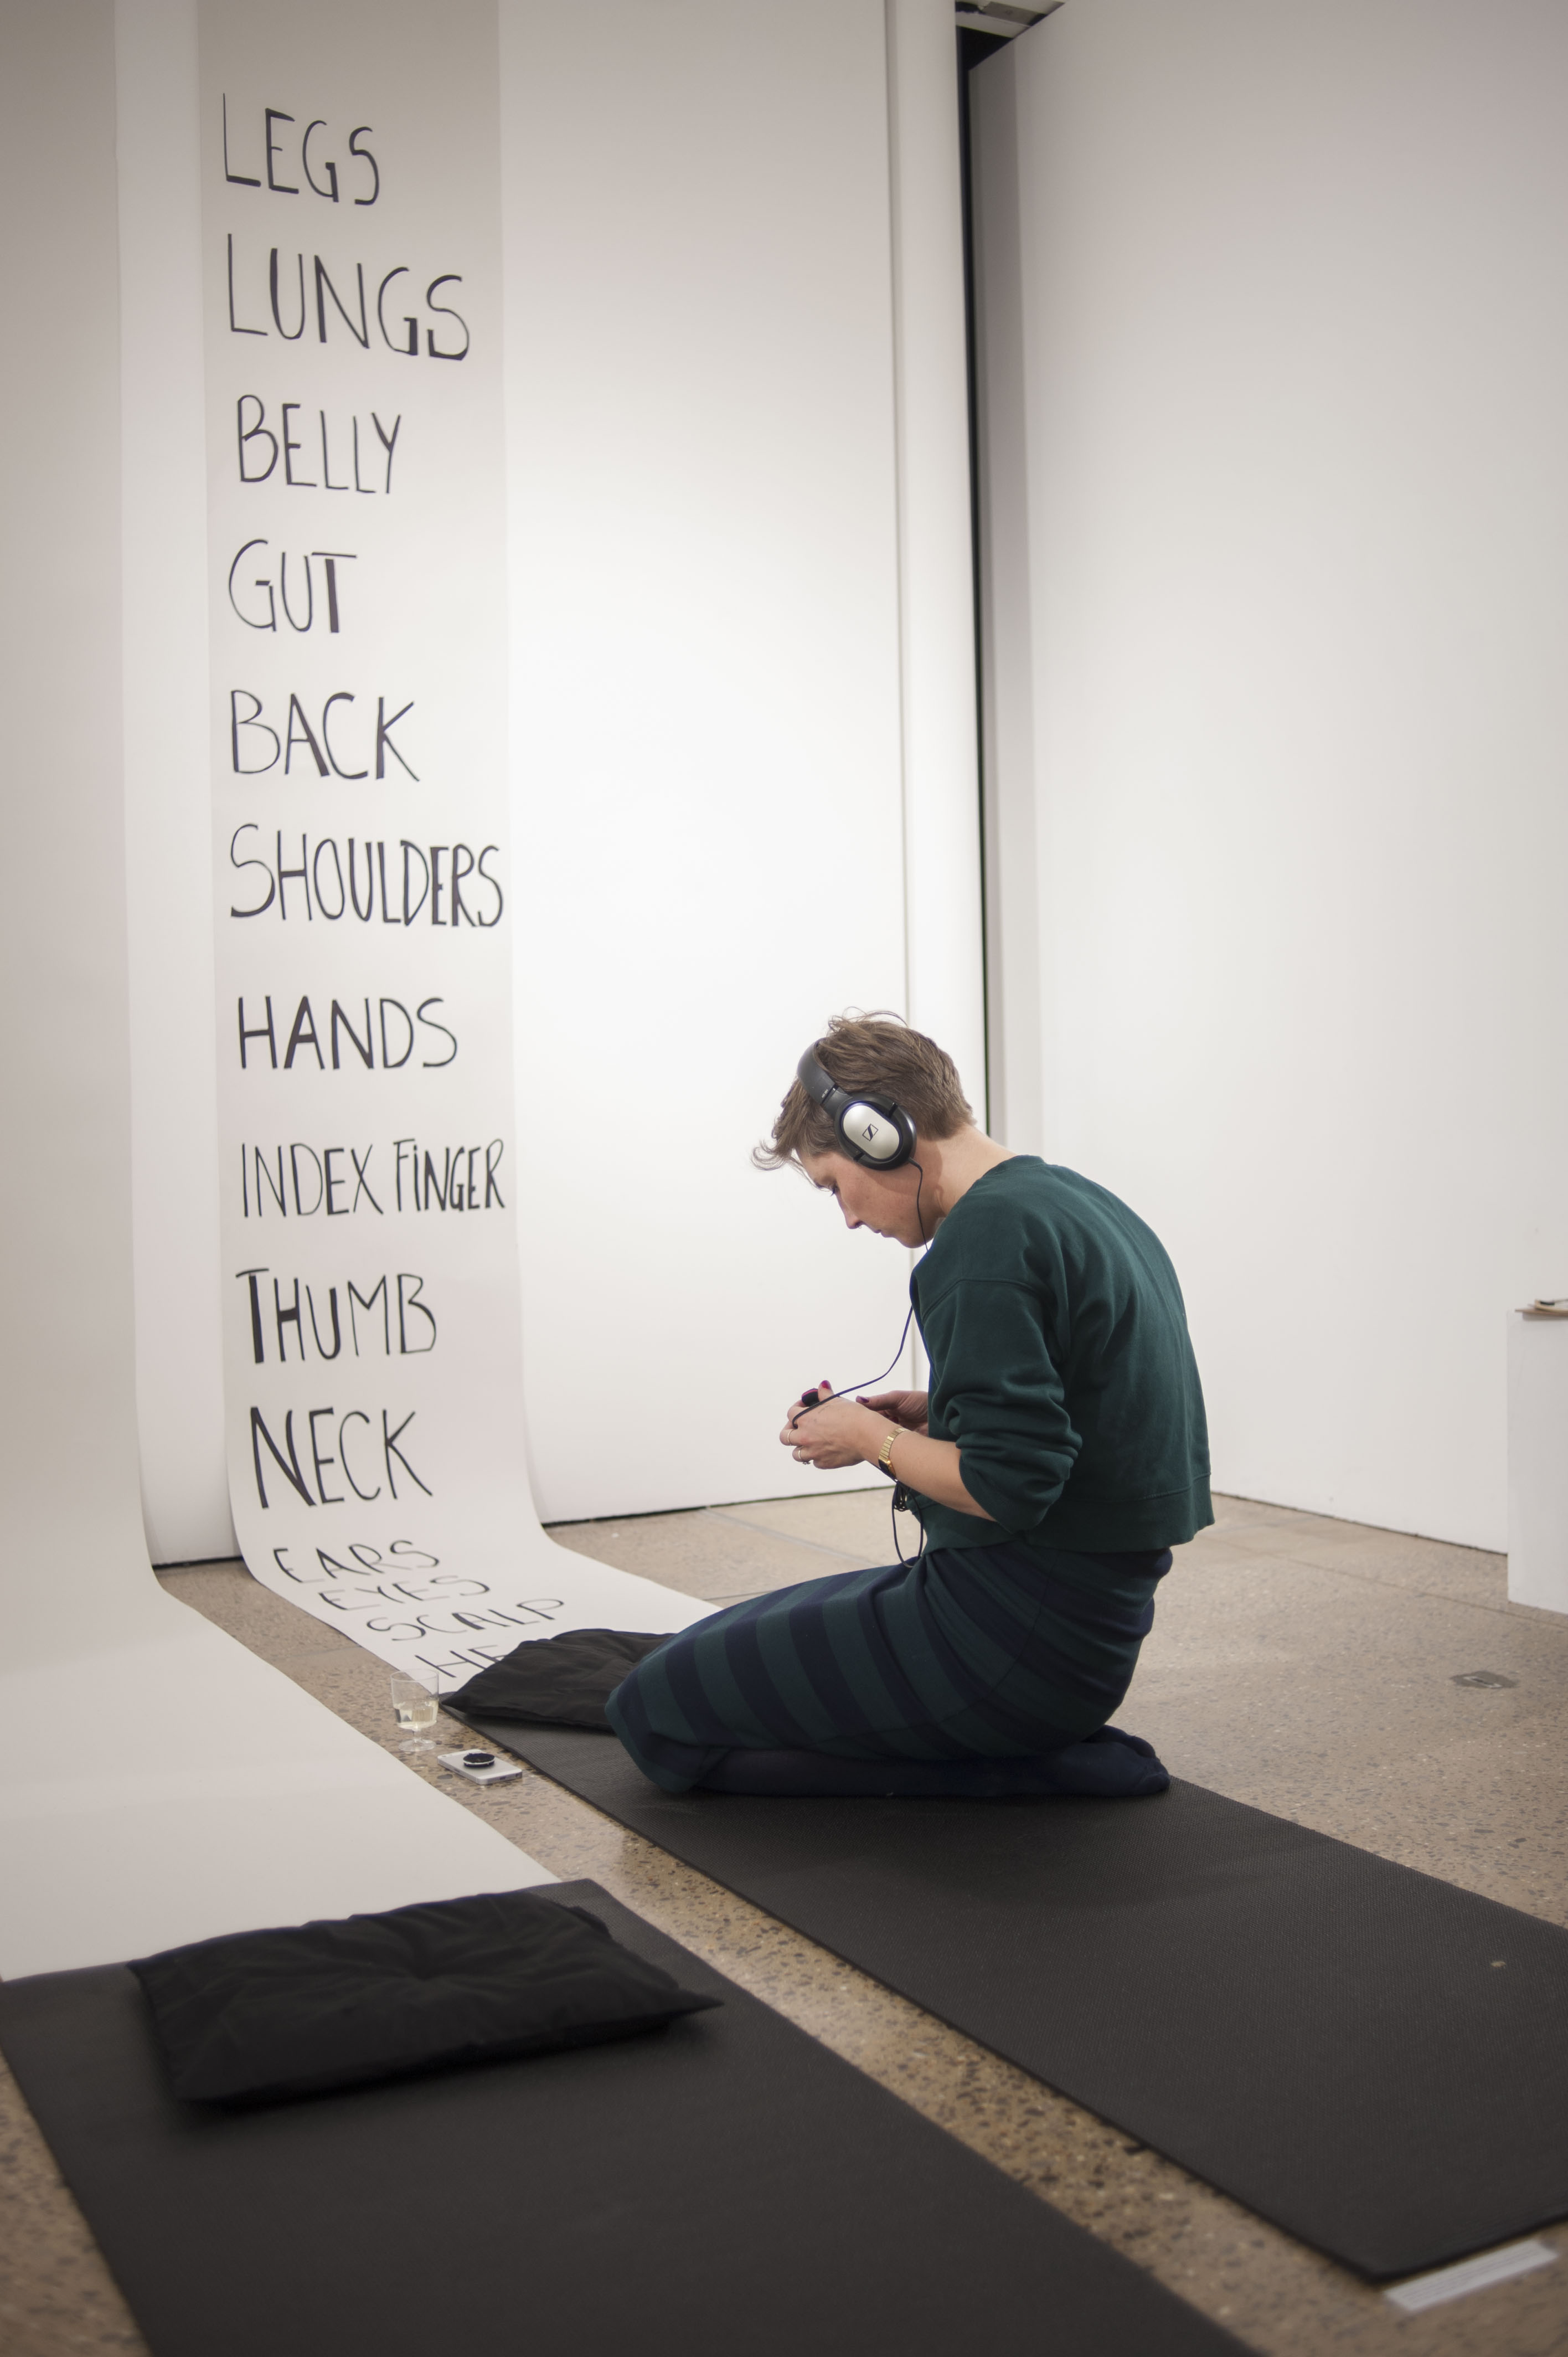 LEGS
LUNGS
BELLY
GUT
BACK
SHOULDERS
HANDS
INDEX FINGER
THUMB
NECK
EARS
EYES
SCALP